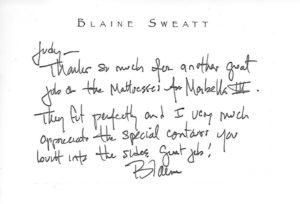 BLAINE SWEATT
Judy—
Thanks so much for another great
job on the Mattresses for Marbella III.
They fit perfectly and I very much
appreciate the special contours you
built into the sides. Great job!
Blaine